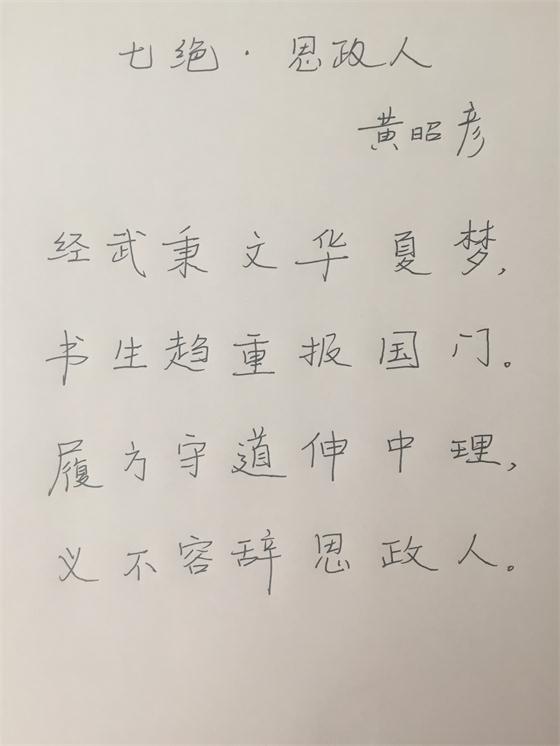 七绝·思政人
黄昭彦
经武秉文华夏梦,
书生趋重报国门。
履方守道伸中理,
义不容辞思政人。